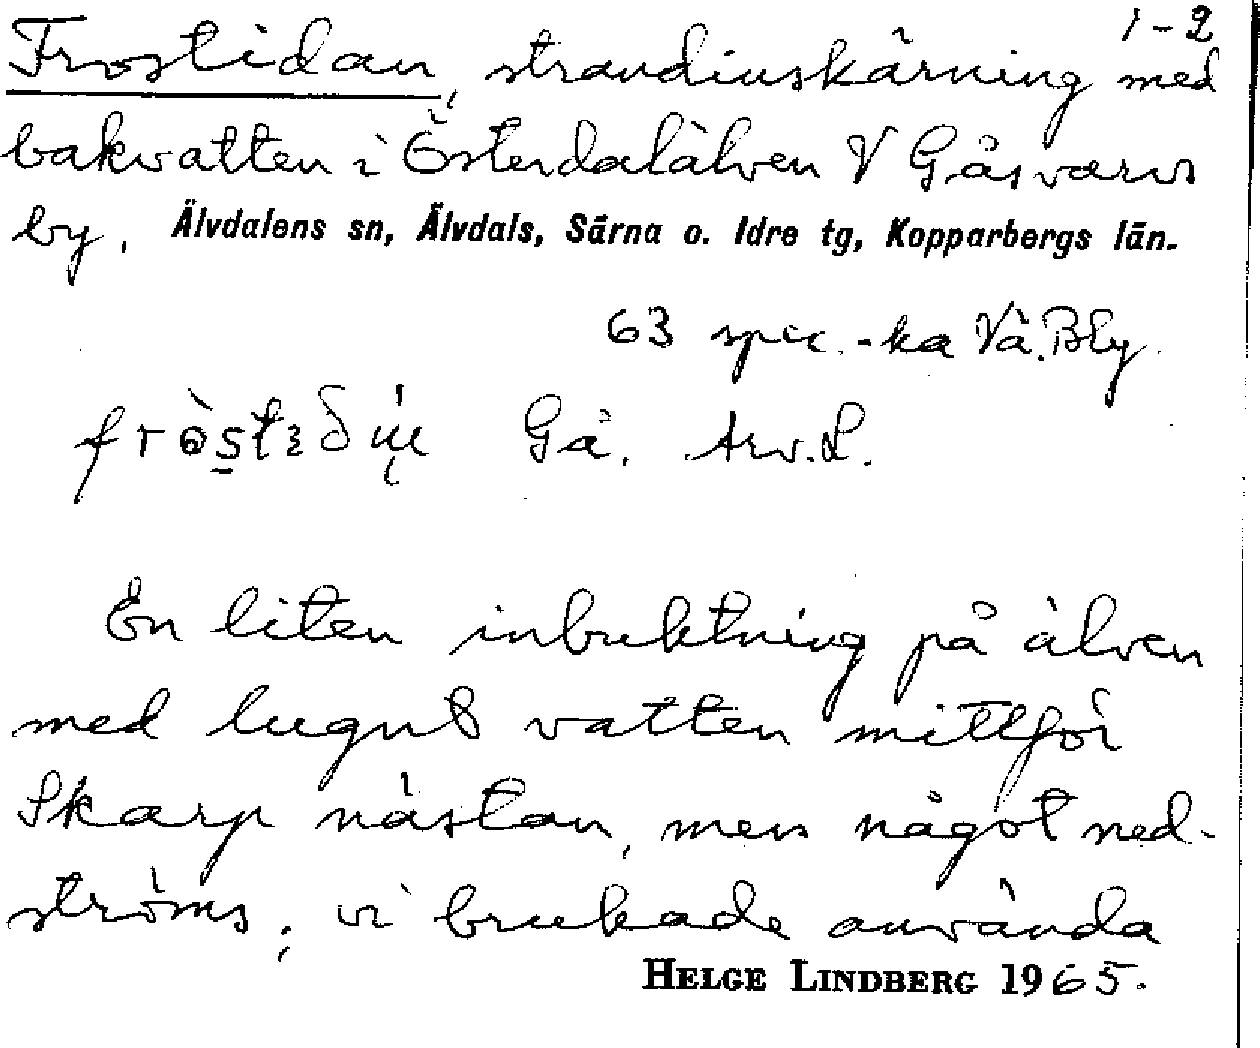 1-2
Frostidan, strandinskärning med
bakvatten i Österdalälven V Gåsvarvs
by. Älvdalens sn, Älvdals, Särna o. Idre tg, Kopparbergs län.
63 spec.-ka Vä. Bly.
Gå. Arv. L.
En liten inbuktning på älven
med lugnt vatten mittför
Skarp nästan, men något ned-
ströms; vi brukade använda
HELGE LINDBERG 1965.